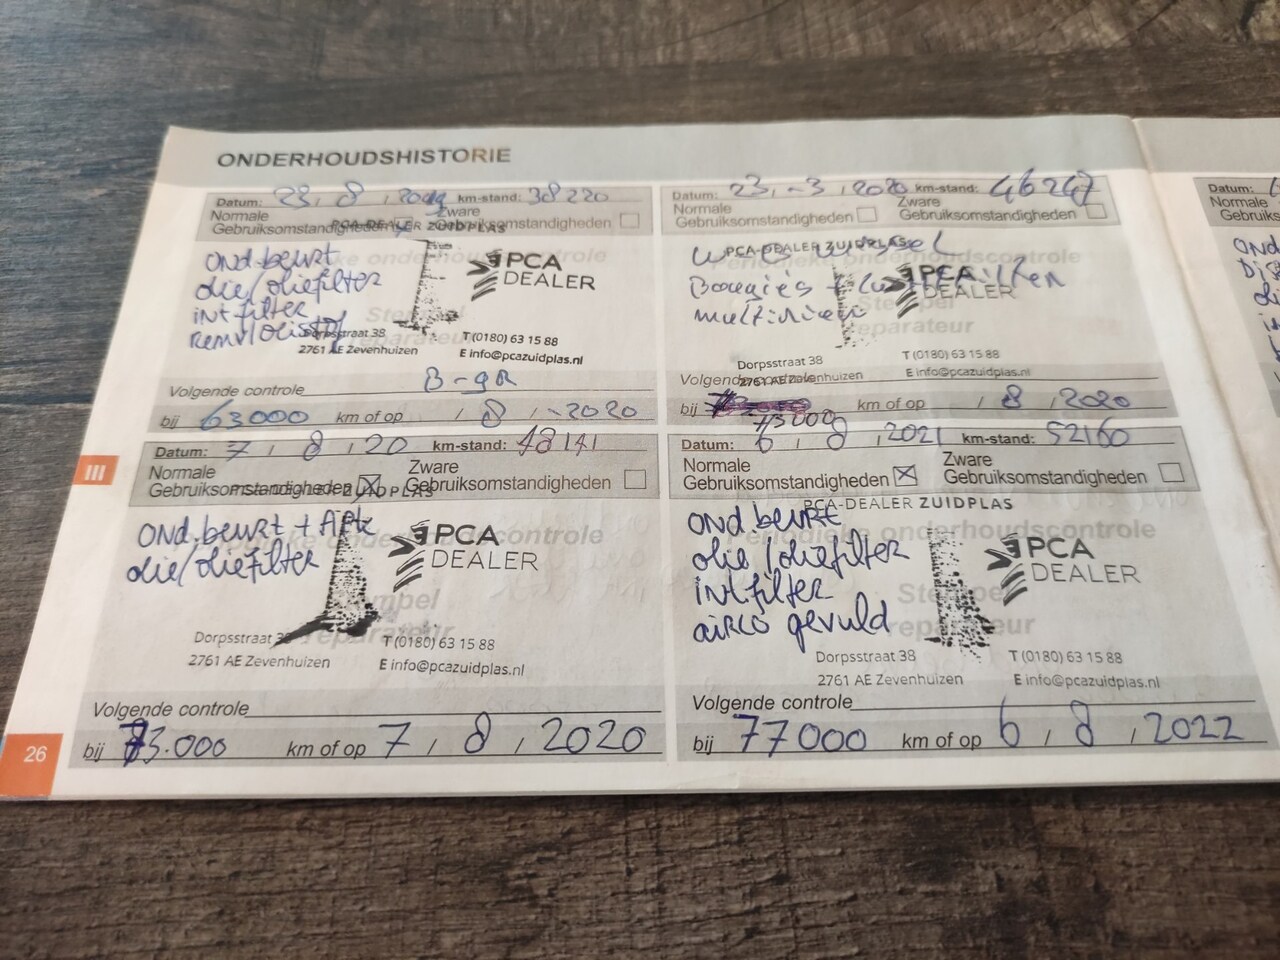 ONDERHOUDSHISTORIE
Datum: 23, 8, 2019 km-stand: 38220
Normale Zware
Gebruiksomstandigheden Gebruiksomstandigheden
PCA-DEALER ZUIDPLAS
ond.beurt
olie/oliefilter
int filter
remvloeistof
PCA
DEALER
Stempel
reparateur
Dorpsstraat 38 T (0180) 63 15 88
2761 AE Zevenhuizen E info@pcazuidplas.nl
Volgende controle B-gR
bij 63000 km of op , 8, -2020
Datum: 23, -3, 2020 km-stand: 46247
Normale Zware
Gebruiksomstandigheden Gebruiksomstandigheden
PCA-DEALER ZUIDPLAS
Periodieke onderhoudscontrole
wissel
Bougie's +
multiriem
PCA
DEALER
Stempel
reparateur
Dorpsstraat 38 T (0180) 63 15 88
2761 AE Zevenhuizen E info@pcazuidplas.nl
Volgende controle
bij 73000 km of op , 8, 2020
III
Datum: 7, 8, 20 km-stand: 48141
Normale Zware
Gebruiksomstandigheden Gebruiksomstandigheden
PCA-DEALER ZUIDPLAS
ond.beurt + APK
olie/oliefilter
Periodieke onderhoudscontrole
PCA
DEALER
Stempel
reparateur
Dorpsstraat 38 T (0180) 63 15 88
2761 AE Zevenhuizen E info@pcazuidplas.nl
Volgende controle
bij 73.000 km of op 7, 8, 2020
Datum: 6, 8, 2021 km-stand: 52160
Normale Zware
Gebruiksomstandigheden Gebruiksomstandigheden
PCA-DEALER ZUIDPLAS
ond.beurt
olie/oliefilter
int filter
airco gevuld
Periodieke onderhoudscontrole
PCA
DEALER
Stempel
reparateur
Dorpsstraat 38 T (0180) 63 15 88
2761 AE Zevenhuizen E info@pcazuidplas.nl
Volgende controle
bij 77000 km of op 6, 8, 2022
26
Datum:
Normale
Gebruiks
ond